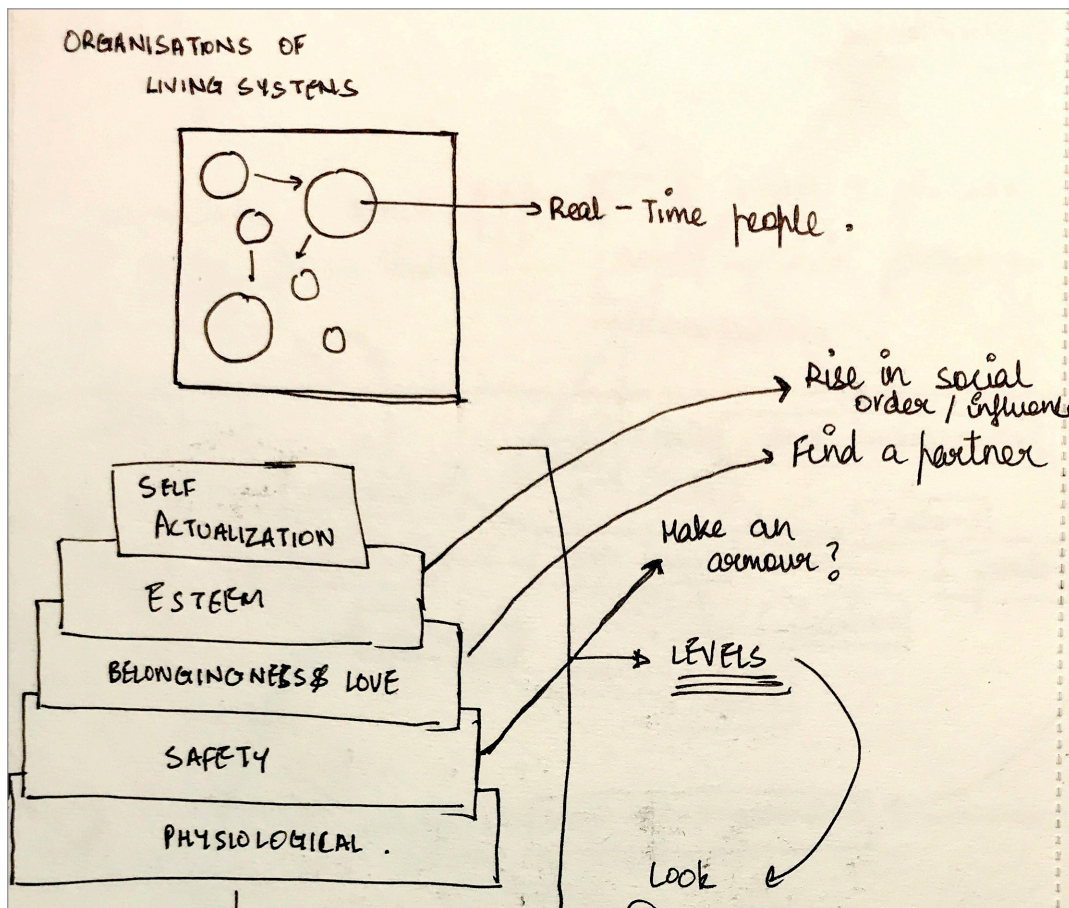 ORGANISATIONS OF
LIVING SYSTEMS
Real-Time people.
Rise in social
order / influenc
Find a partner
Make an
armour?
SELF
ACTUALIZATION
ESTEEM
BELONGINGNESS & LOVE
SAFETY
PHYSIOLOGICAL.
LEVELS
Look